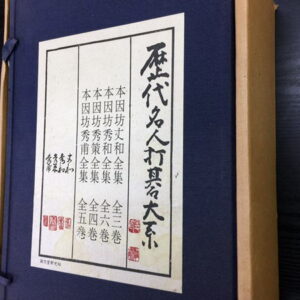 歴代名人打碁大系
本因坊丈和全集 全三巻
本因坊秀和全集 全六巻
本因坊秀策全集 全四巻
本因坊秀甫全集 全五巻
丈和
秀和
秀策
秀甫